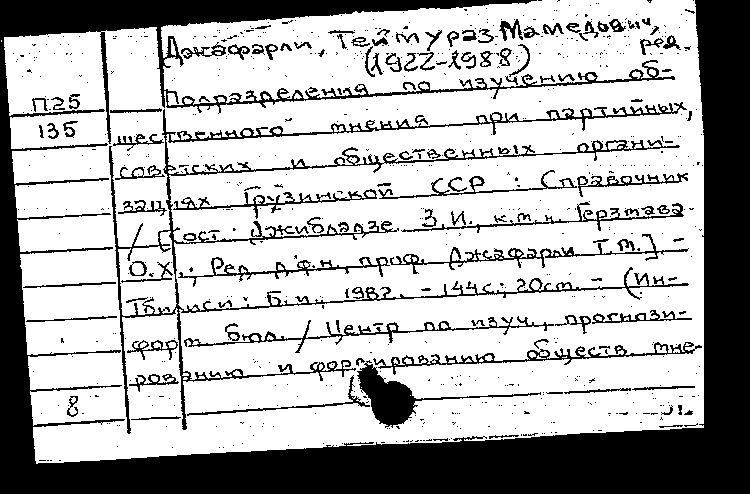 Джафарли, Теймураз Мамедович,
(1922-1988) ред.
П25 Подразделения по изучению об-
135 щественного мнения при партийных,
советских и общественных органи-
зациях Грузинской ССР : Справочник
/ [Сост.: Джибладзе З.И., к.т.н. Герзмава
О.Х.; Ред. д.ф.н., проф. Джафарли Т.М.]. -
Тбилиси: Б.и., 1982. - 144с.; 20см. - (Ин-
форм бюл. / Центр по изуч., прогнози-
рованию и формированию обществ. мне-
8